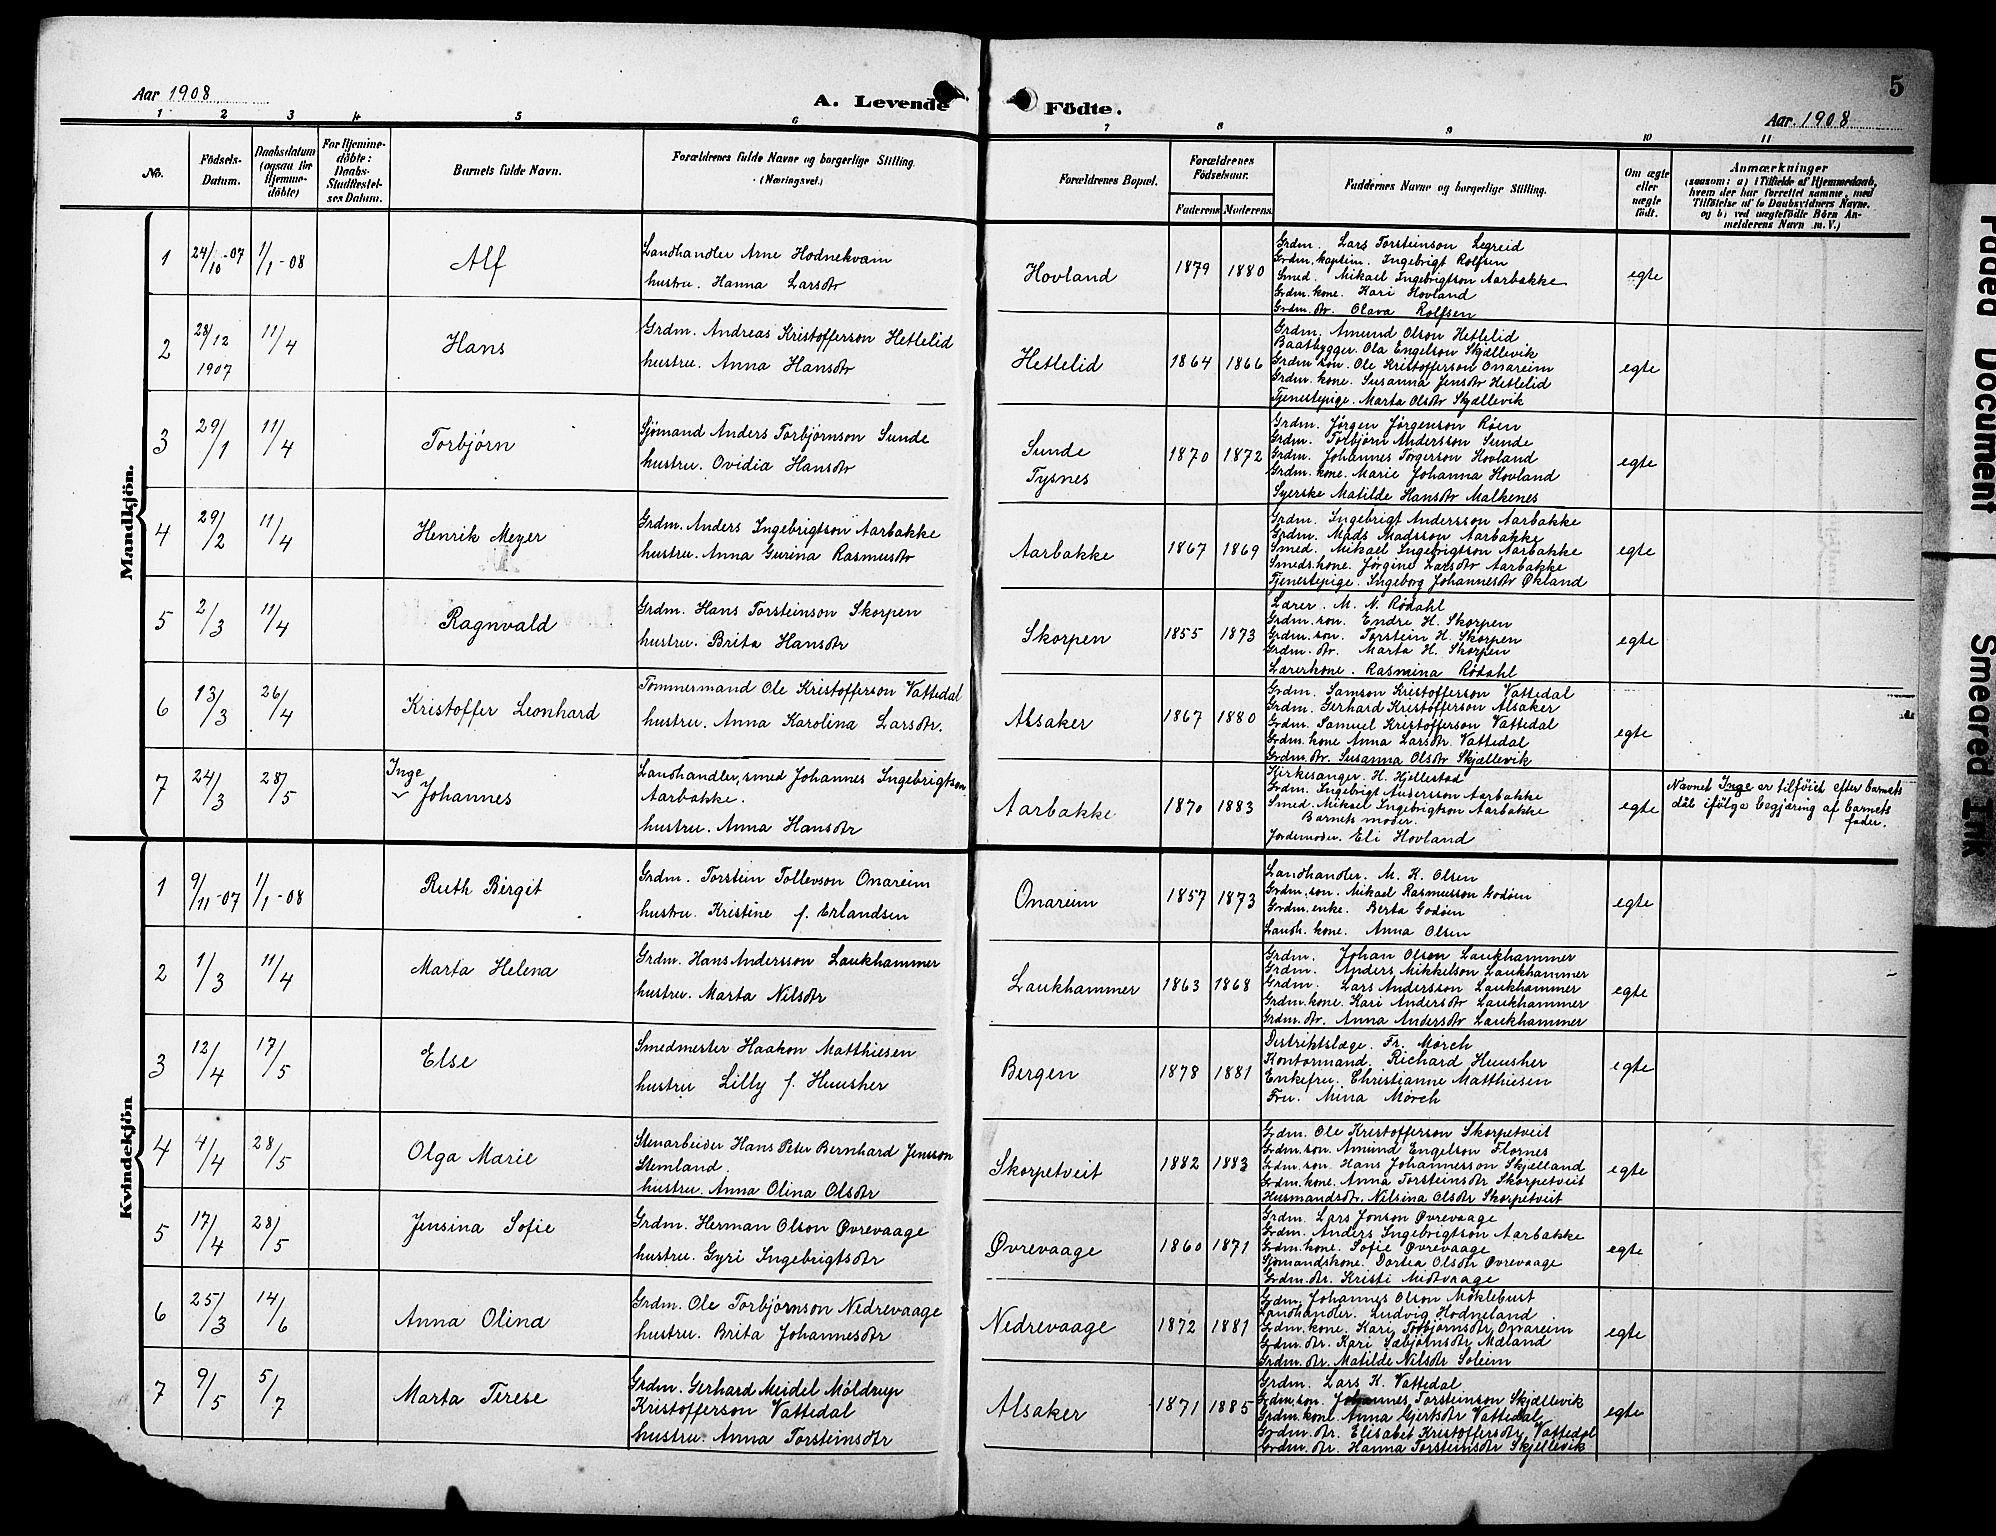 Aar 1908
A. Levende Födte.
Aar 1908
5
1 2 3 4 5 6 7 8 9 10 11
No.
Födsels-Datum.
Daabsdatum (ogsaa for Hjemme-döbte)
For Hjemme-döbte: Daabs-Stadfæstel-ses Datum.
Barnets fulde Navn.
Forældrenes fulde Navne og borgerlige Stilling. (Næringsvei.)
Forældrenes Bopæl.
Forældrenes Födselsaar.
Faderens Moderens
Faddernes Navne og borgerlige Stilling.
Om ægte eller uægte födt.
Anmærkninger
(saasom: a) i Tilfælde af Hjemmedaab, hvem der har forrettet samme, med Tilföielse af to Daabsvidners Navne, og b) ved uægtefödte Börn Anmelderens Navn m. V.)
Mandkjön.
1
24/10-07
1/1-08
Alf
Landhandler Arne Hodnekvam
hustru. Hanna Larsdtr
Hovland
1879
1880
Grdm. Lars Torsteinson Legreid
Grdm. kaptein. Ingebrigt Rolfsen
Smed. Mikael Ingebrigtson Aarbakke
Grdm. kone. Kari Hovland
Grdm. dtr. Olava Rolfsen
egte
2
28/12
1907
11/4
Hans
Grdm. Andreas Kristofferson Hettelid
hustru. Anna Hansdtr
Hettelid
1864
1866
Grdm. Amund Olson Hettelid
Baatbygger. Ola Engelson Skjællevik
Grdm kon. Ole Kristofferson Onareim
Grdm. kone. Susanna Jensdtr Hettelid
Tjenestepige. Marta Olsdtr Skjællevik
egte
3
29/1
11/4
Torbjörn
Sjömand Anders Torbjörnson Sunde
hustru. Ovidia Hansdtr
Sunde
Tysnes
1870
1872
Grdm. Jørgen Jørgenson Röen
Grdm. Torbjörn Andersson Sunde
Grdm. Johannes Torgerson Hovland
Grdm. kone. Marie Johanna Hovland
Syerske Matilde Hansdtr Malkenes
egte
4
29/2
11/4
Henrik Meyer
Grdm. Anders Ingebrigtson Aarbakke
hustru. Anna Gurina Rasmusdtr
Aarbakke
1867
1869
Grdm. Ingebrigt Andersson Aarbakke
Grdm. Mads Madsson Aarbakke
Smed. Mikael Ingebrigtson Aarbakke
Smeds.kone. Jørgine Larsdtr Aarbakke
Tjenestepige. Ingeborg Johannesdtr Økland
egte
5
2/3
11/4
Ragnvald
Grdm. Hans Torsteinson Skorpen
hustru. Brita Hansdtr
Skorpen
1855
1873
Lærer. M. N. Rödahl
Grdm. son. Endre H. Skorpen
Grdm. son. Torstein H. Skorpen
Grdm. dtr. Marta H. Skorpen
Lærerkone. Rasmina Rödahl
egte
6
13/3
26/4
Kristoffer Leonhard
Tömmermand Ole Kristofferson Vattedal
hustru. Anna Karolina Larsdtr.
Alsaker
1867
1880
Grdm. Samson Kristofferson Vattedal
Grdm. Gerhard Kristofferson Alsaker
Grdm. Samuel Kristofferson Vattedal
Grdm. kone Anna Larsdtr. Vattedal
Grdm. dtr. Susanna Olsdtr Skjællevik
egte
7
24/3
28/5
Inge
Johannes
Landhandler, smed Johannes Ingebrigtson
Aarbakke.
hustru. Anna Hansdtr
Aarbakke
1870
1883
Kirkesanger. H. Hjellestad
Grdm. Ingebrigt Andersson Aarbakke
Smed. Mikael Ingebrigtson Aarbakke
Barnets moder.
Jordemoder. Eli Hovland
egte
Navnet Inge er tilföiet efter barnets
dåb ifölge begjæring af barnets
fader.
Kvindekjön
1
9/11-07
1/1-08
Ruth Birgit
Grdm. Torstein Tollevson Onareim
hustru. Kristine f. Erlandsen
Onareim
1857
1873
Landhandler. M. K. Olsen
Grdm. son. Mikael Rasmusson Godöen
Grdm. enke. Berta Godöen
Landh. kone. Anna Olsen
egte
2
1/3
11/4
Marta Helena
Grdm. Hans Andersson Laukhammer
hustru. Marta Nilsdtr
Laukhammer
1863
1868
Grdm. Johan Olson Laukhammer
Grdm. Anders Mikkelson Laukhammer
Grdm. Lars Andersson Laukhammer
Grdm. kone. Kari Andersdtr Laukhammer
Grdm. dtr. Anna Andersdtr Laukhammer
egte
3
12/4
17/5
Else
Smedmester Haakon Matthiesen
hustru Lilly f. Huusher
Bergen
1878
1881
Distriktslæge. Fr. Mörch
Kontormand. Richard Huusher
Enkefru. Christianne Matthiesen
Fru. Mina Mörch
egte
4
4/4
28/5
Olga Marie
Stenarbeider Hans Peter Bernhard Jensson
Stemland.
hustru. Anna Olina Olsdtr
Skorpetveit
1882
1883
Grdm. Ole Kristofferson Skorpetveit
Grdm. son. Amund Engelson Flornes
Grdm. son. Hans Johannesson Skjelland
Grdm. kone. Anna Torsteinsdtr Skorpetveit
Husmandsdtr. Nilsina Olsdtr Skorpetveit
egte
5
17/4
28/5
Jensina Sofie
Grdm. Herman Olson Øvrevaage
hustru. Gyri Ingebrigtsdtr
Øvrevaage
1860
1871
Grdm. Lars Jonson Øvrevaage
Grdm. Anders Ingebrigtson Aarbakke
Grdm. kone. Sofie Øvrevaage
Sjömandskone. Dortea Olsdtr Øvrevaage
Grdm. dtr. Kristi Midtvaage
egte
6
25/3
14/6
Anna Olina
Grdm. Ole Torbjörnson Nedrevaage
hustru. Brita Johannesdtr
Nedrevaage
1872
1881
Grdm. Johannes Olson Møklebust
Landhandler. Ludvig Hodneland
Grdm. kone. Kari Torbjörnsdtr Onareim
Grdm. dtr. Kari Sæbjörnsdtr Mæland
Grdm. dtr. Matilde Nilsdtr Soleim
egte
7
9/5
5/7
Marta Terese
Grdm. Gerhard Meidel Möldrup
Kristofferson Vattedal
hustru. Anna Torsteinsdtr
Alsaker
1871
1885
Grdm. Lars K. Vattedal
Grdm. son. Johannes Torsteinson Skjællevik
Grdm. kone Anna Gjertsdtr Vattedal
Grdm. dtr. Elisabet Kristoffersdtr Vattedal
Grdm. dtr. Hanna Torsteinsdtr Skjellevik
egte
Faded Document
Smeared Ink